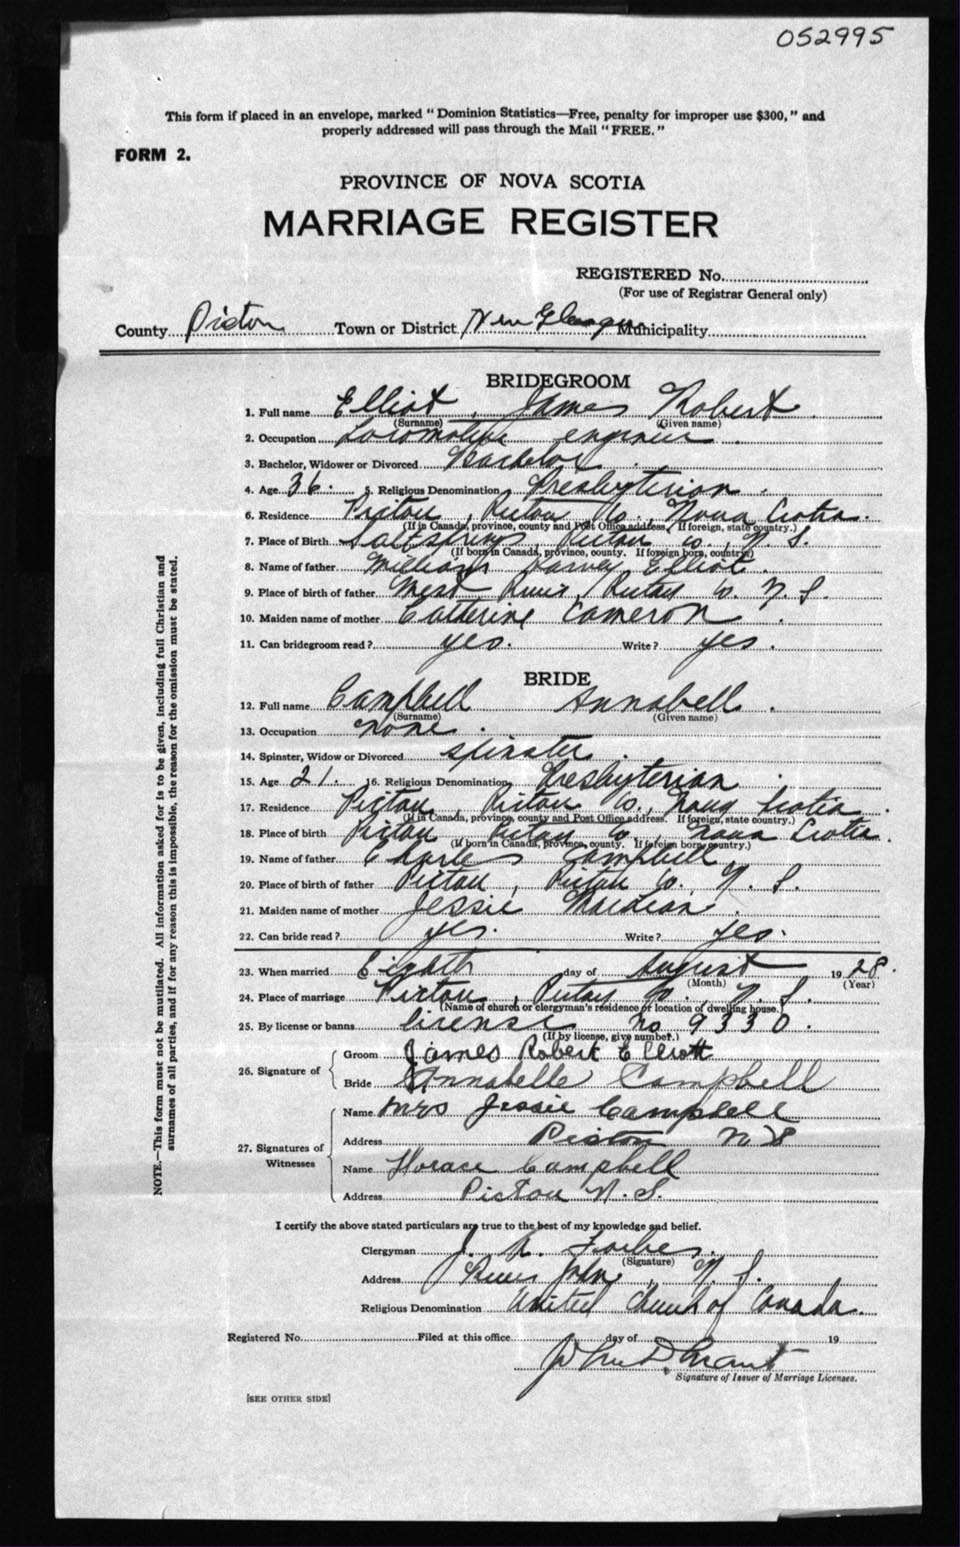 052995
This form if placed in an envelope, marked "Dominion Statistics—Free, penalty for improper use $300," and
properly addressed will pass through the Mail "FREE."
FORM 2.
PROVINCE OF NOVA SCOTIA
MARRIAGE REGISTER
REGISTERED No.
(For use of Registrar General only)
County Pictou Town or District New Glasgow Municipality
BRIDEGROOM
1. Full name Elliot, James Robert
(Surname) (Given name)
2. Occupation Locomotive engineer
3. Bachelor, Widower or Divorced Bachelor
4. Age 36. 5. Religious Denomination Presbyterian.
6. Residence Pictou, Pictou Co., Nova Scotia.
(If in Canada, province, county and Post Office address. If foreign, state country.)
7. Place of Birth Saltsprings, Pictou Co., N. S.
(If born in Canada, province, county. If foreign born, country.)
8. Name of father William Harvey Elliot.
9. Place of birth of father West River, Pictou Co. N. S.
10. Maiden name of mother Catherine Cameron.
11. Can bridegroom read? yes. Write? yes.
BRIDE
12. Full name Campbell Annabell.
(Surname) (Given name)
13. Occupation none.
14. Spinster, Widow or Divorced spinster.
15. Age 21. 16. Religious Denomination Presbyterian.
17. Residence Pictou, Pictou Co., Nova Scotia.
(If in Canada, province, county and Post Office address. If foreign, state country.)
18. Place of birth Pictou, Pictou Co., Nova Scotia.
(If born in Canada, province, county. If foreign born, country.)
19. Name of father Charles Campbell.
20. Place of birth of father Pictou, Pictou Co., N. S.
21. Maiden name of mother Jessie
22. Can bride read? yes. Write? yes.
23. When married Eighth day of August 1928.
(Month) (Year)
24. Place of marriage Pictou, Pictou Co., N. S.
(Name of church or clergyman's residence or location of dwelling house.)
25. By license or banns license No 9330.
(If by license, give number.)
26. Signature of
Groom James Robert Elliott
Bride Annabelle Campbell
27. Signatures of Witnesses
Name Mrs Jessie Campbell
Address Pictou N S
Name Horace Campbell
Address Pictou N. S.
I certify the above stated particulars are true to the best of my knowledge and belief.
Clergyman J. K. Forbes.
(Signature)
Address River John, N. S.
Religious Denomination United Church of Canada.
Registered No. Filed at this office day of 19
John D. Grant
Signature of Issuer of Marriage Licenses.
[SEE OTHER SIDE]
NOTE.—This form must not be mutilated. All information asked for is to be given, including full Christian and
surnames of all parties, and if for any reason this is impossible, the reason for the omission must be stated.